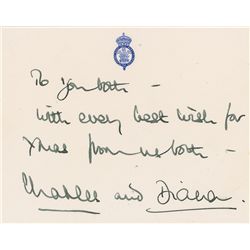 To you both –
with every best wish for
Xmas from us both –
Charles and Diana.